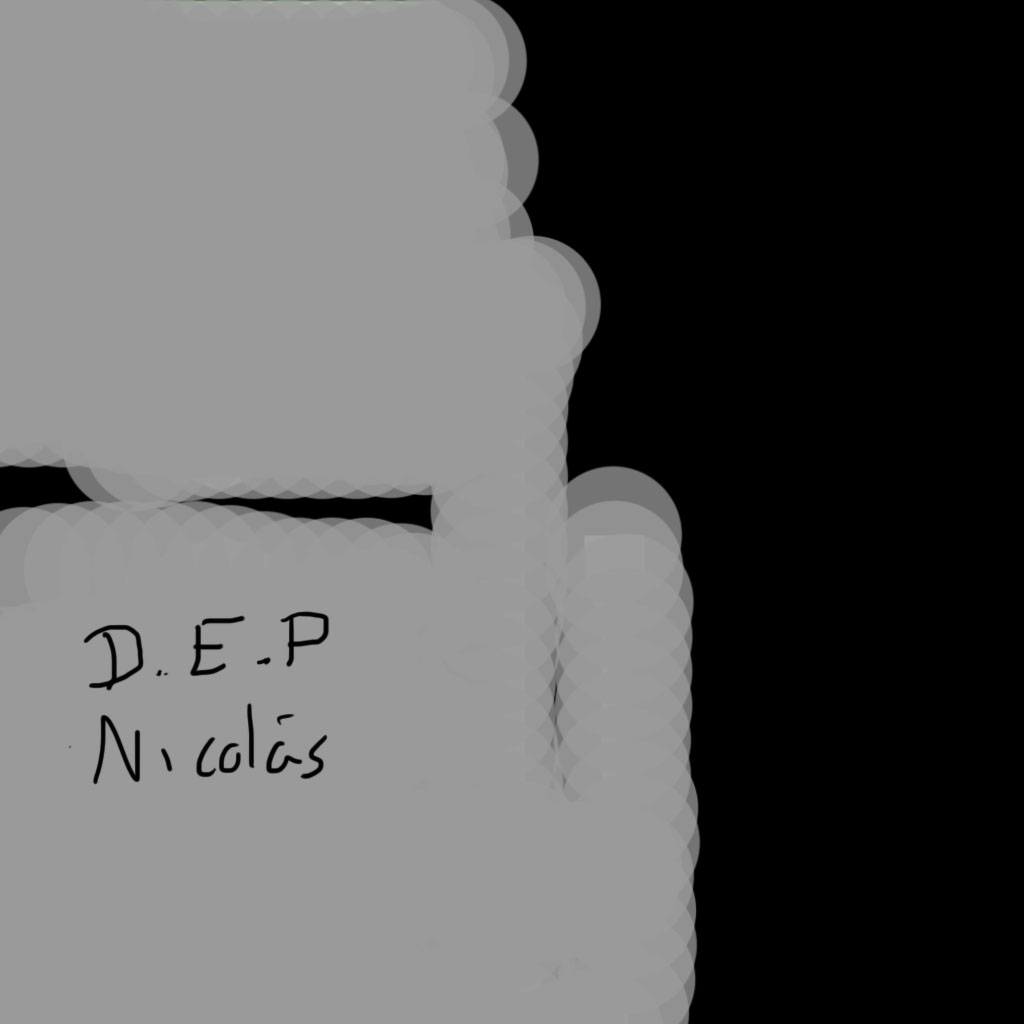 D.E.P
Nicolás